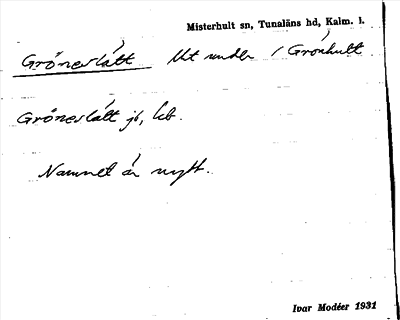 Misterhult sn, Tunaläns hd, Kalm. l.
Gröneslätt Ut under 1 Grönhult
Gröneslätt jb, kb.
Namnet är nytt.
Ivar Modéer 1931